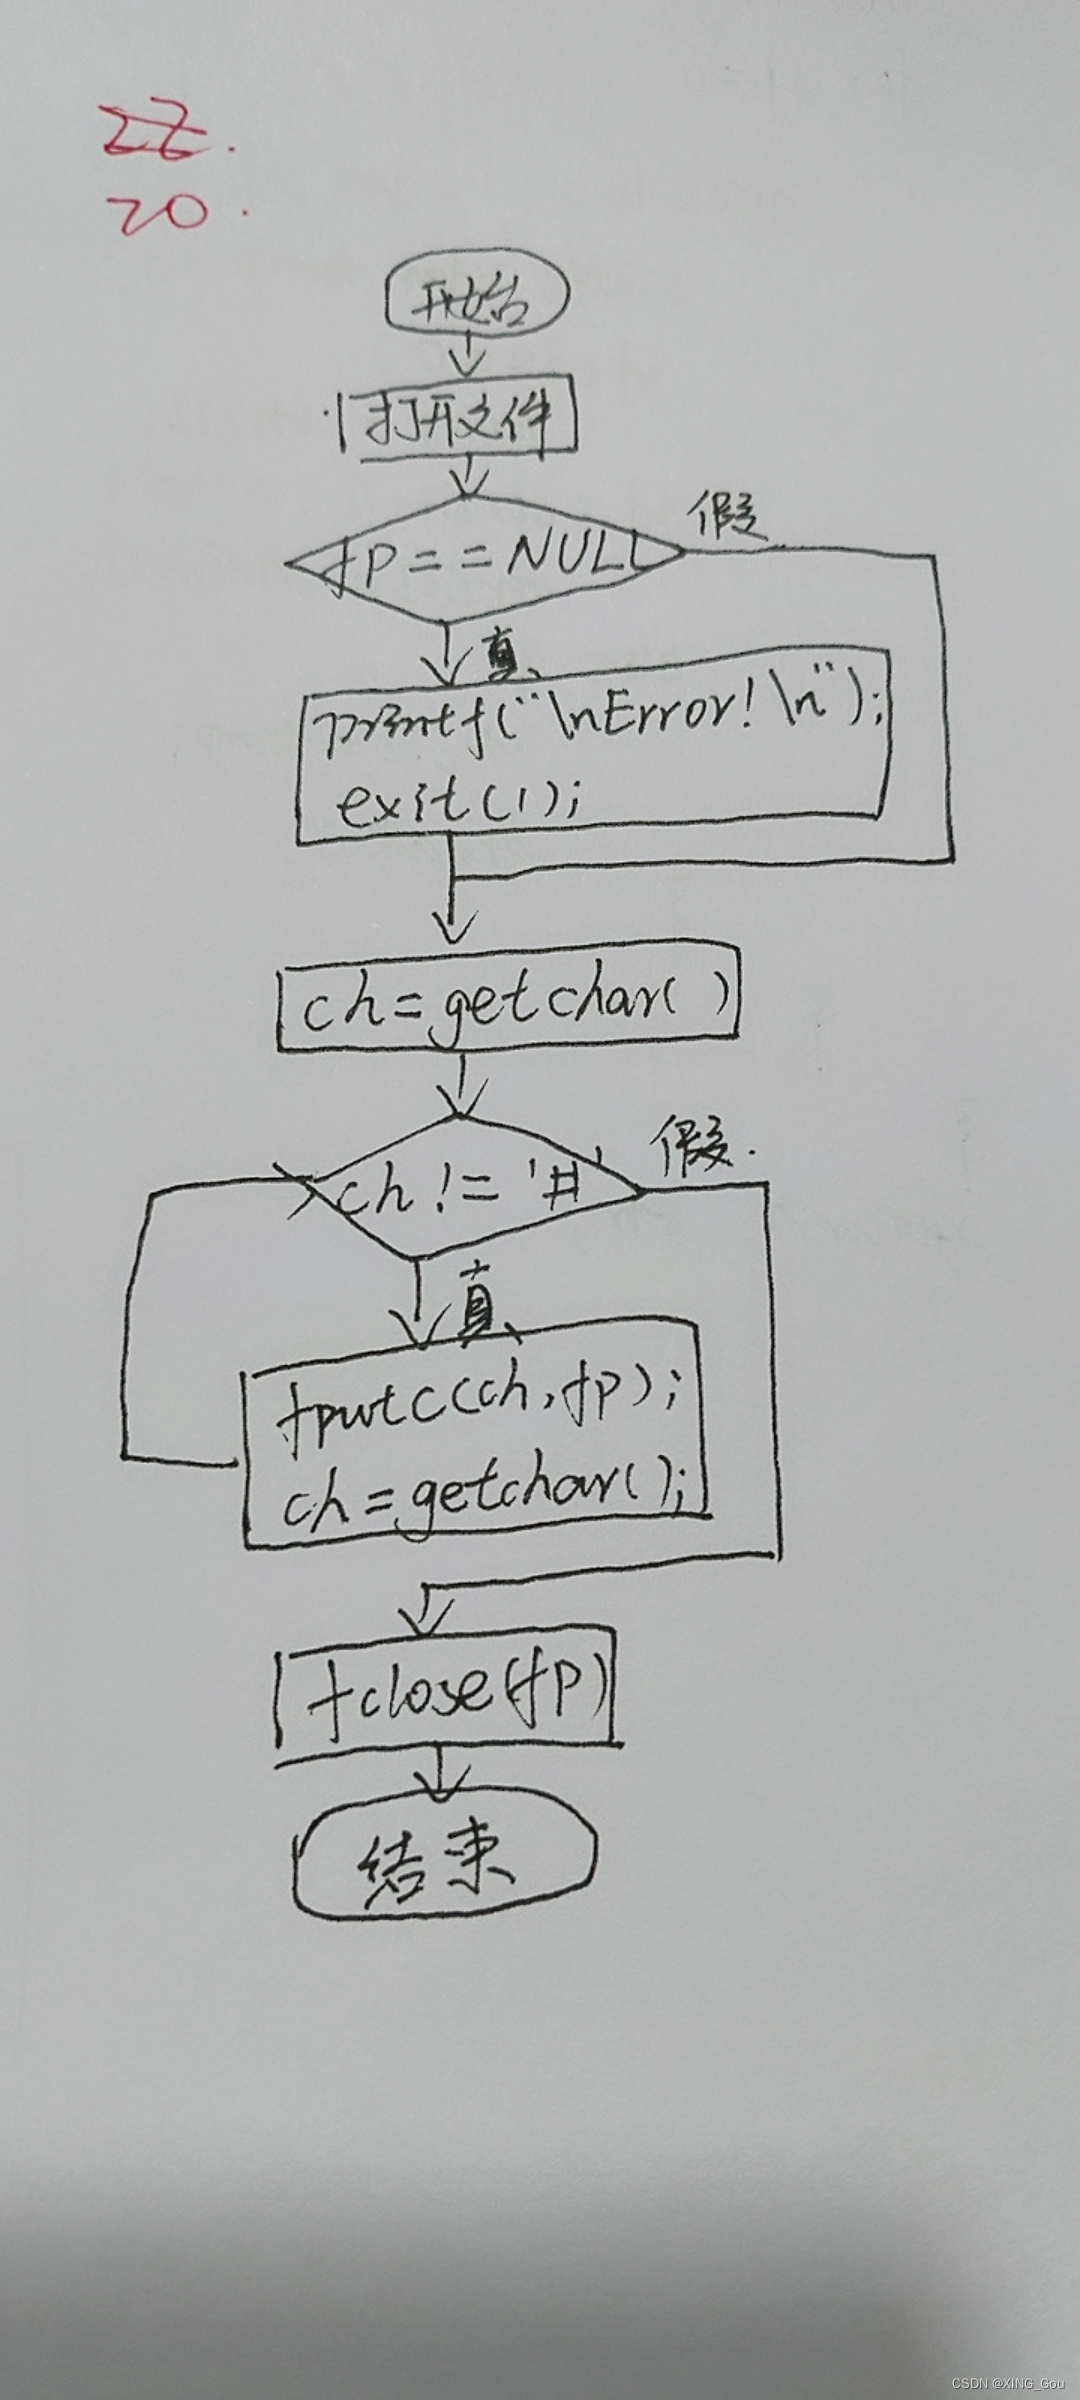 20.
开始
打开文件
fp==NULL
假
真
printf("\nError!\n");
exit(1);
ch=getchar()
ch!='#'
假.
真
fputc(ch,fp);
ch=getchar();
fclose(fp)
结束
CSDN @XING_Gou